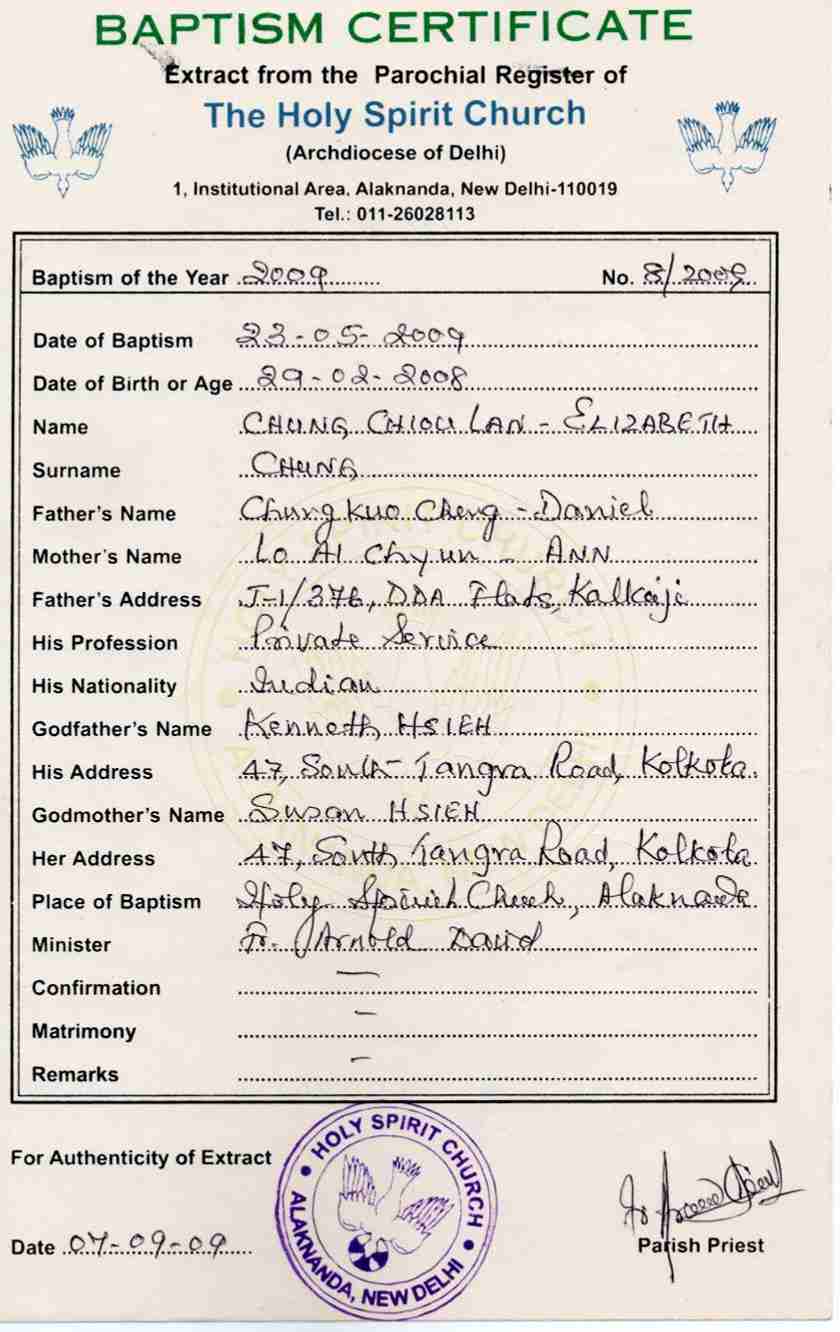 BAPTISM CERTIFICATE
Extract from the Parochial Register of
The Holy Spirit Church
(Archdiocese of Delhi)
1, Institutional Area, Alaknanda, New Delhi-110019
Tel.: 011-26028113
Baptism of the Year 2009 No. 8/2009
Date of Baptism 23-05-2009
Date of Birth or Age 29-02-2008
Name CHUNG CHIOU LAN - ELIZABETH
Surname CHUNG
Father's Name Chung Kuo Cheng - Daniel
Mother's Name Lo AI Chyun - ANN
Father's Address J-1/37B, DDA Flats, Kalkaji
His Profession Private Service
His Nationality Indian
Godfather's Name Kenneth HSIEH
His Address 47, South Tangra Road, Kolkota.
Godmother's Name Susan HSIEH
Her Address 47, South Tangra Road, Kolkota
Place of Baptism Holy Spirit Church, Alaknanda
Minister Fr. Arnold David
Confirmation —
Matrimony —
Remarks —
For Authenticity of Extract
HOLY SPIRIT CHURCH
ALAKNANDA, NEW DELHI
Date 07-09-09
Parish Priest